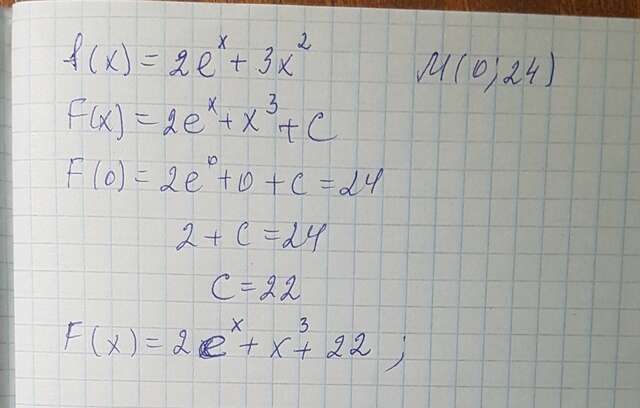 f(x) = 2e^x + 3x^2 M(0;24)
F(x) = 2e^x + x^3 + C
F(0) = 2e^0 + 0 + C = 24
2 + C = 24
C = 22
F(x) = 2e^x + x^3 + 22 ;